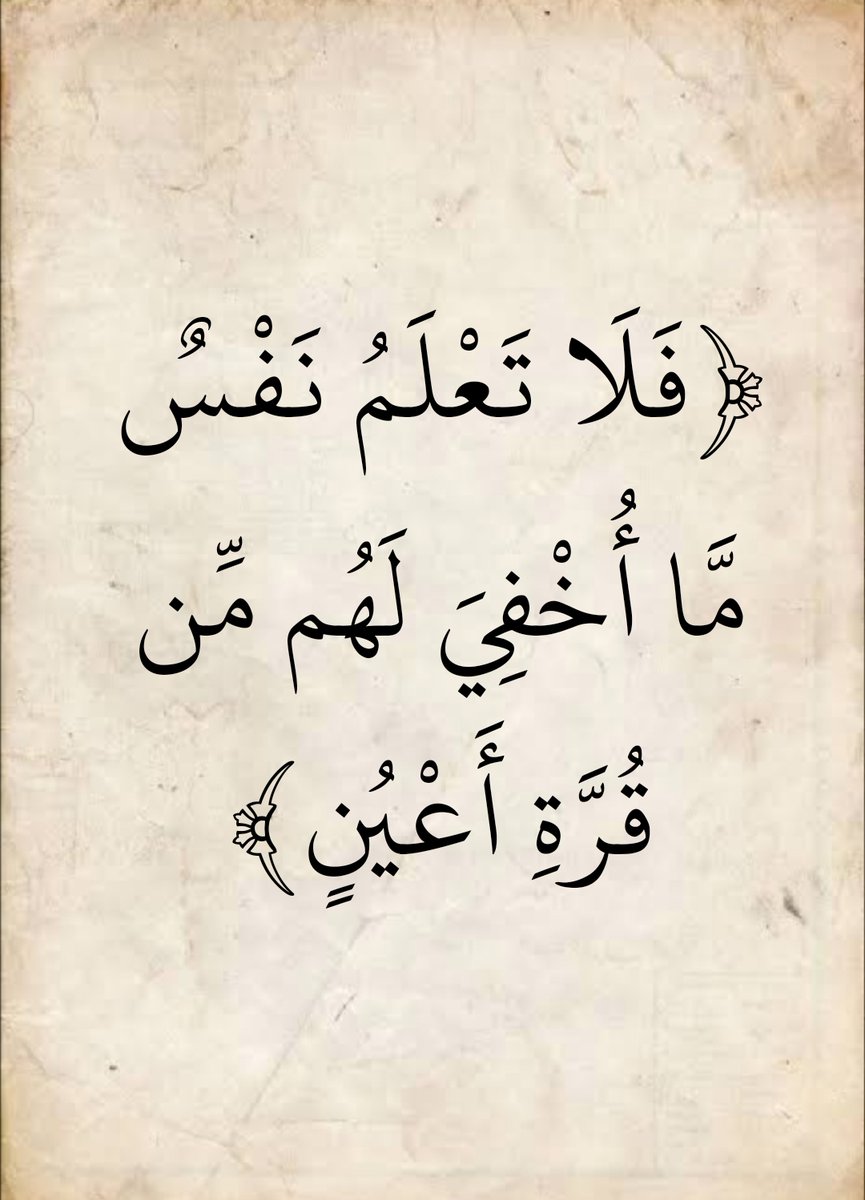 ﴿فَلَا تَعْلَمُ نَفْسٌ
مَّا أُخْفِيَ لَهُم مِّن
قُرَّةِ أَعْيُنٍ ﴾